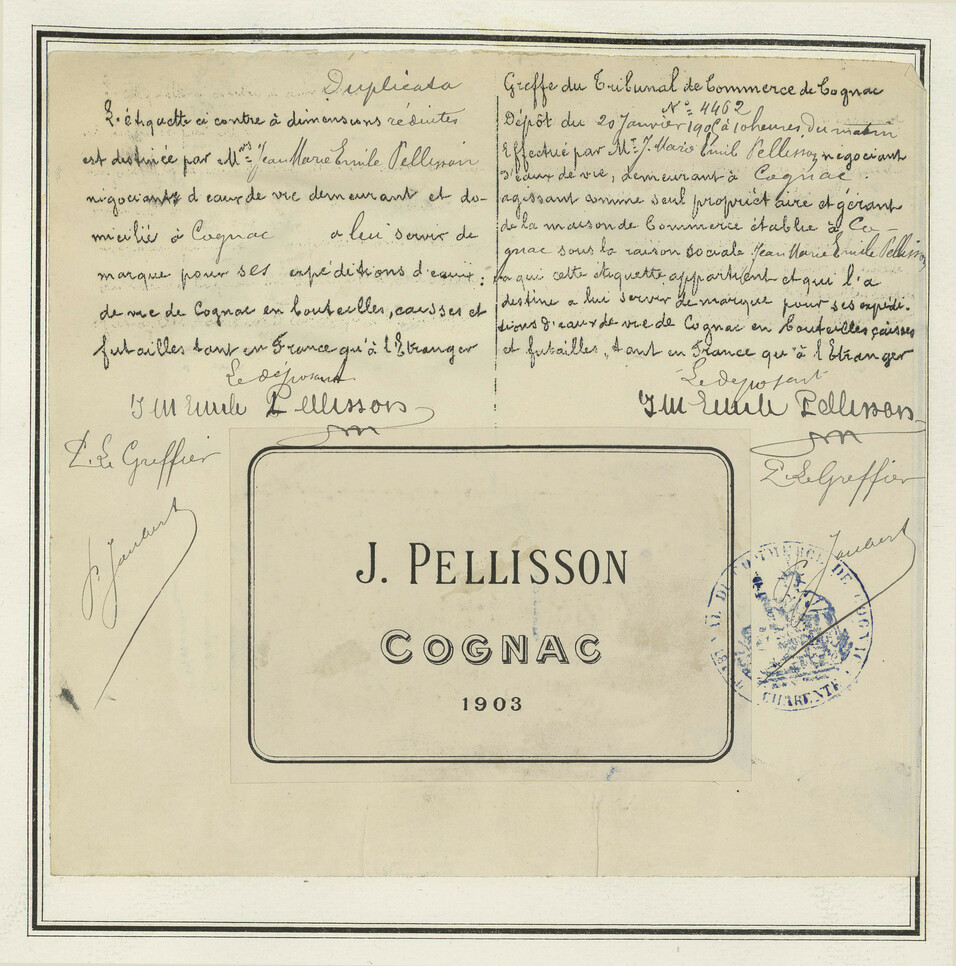 Duplicata
L'étiquette ci contre à dimensions réduites
est destinée par Mrs Jean Marie Emile Pellisson
négociants d'eaux de vie demeurant et do-
micilié à Cognac a lui servir de
marque pour ses expéditions d'eaux
de vie de Cognac en bouteilles, caisses et
futailles tant en France qu'à l'Etranger
Le déposant
J M Emile Pellisson
P. Le Greffier
P. Jaubert
Greffe du Tribunal de Commerce de Cognac
No= 4462
Dépôt du 20 Janvier à 10 heures du matin
Effectué par Mr. J. Marie Emil Pellisson négociant
d'eaux de vie, demeurant à Cognac.
agissant comme seul propriétaire et gérant
de la maison de Commerce établie à Co-
gnac sous la raison sociale Jean Marie Emile Pellisson
a qui cette étiquette appartient et qui l'a
destine a lui servir de marque pour ses expédi-
tions d'eaux de vie de Cognac en bouteilles, caisses
et futailles, tant en France qu'à l'Etranger
Le déposant
J M Emile Pellisson
P. Le Greffier
Jaubert
J. PELLISSON
COGNAC
1903
TRIBUNAL DE COMMERCE DE COGNAC
CHARENTE